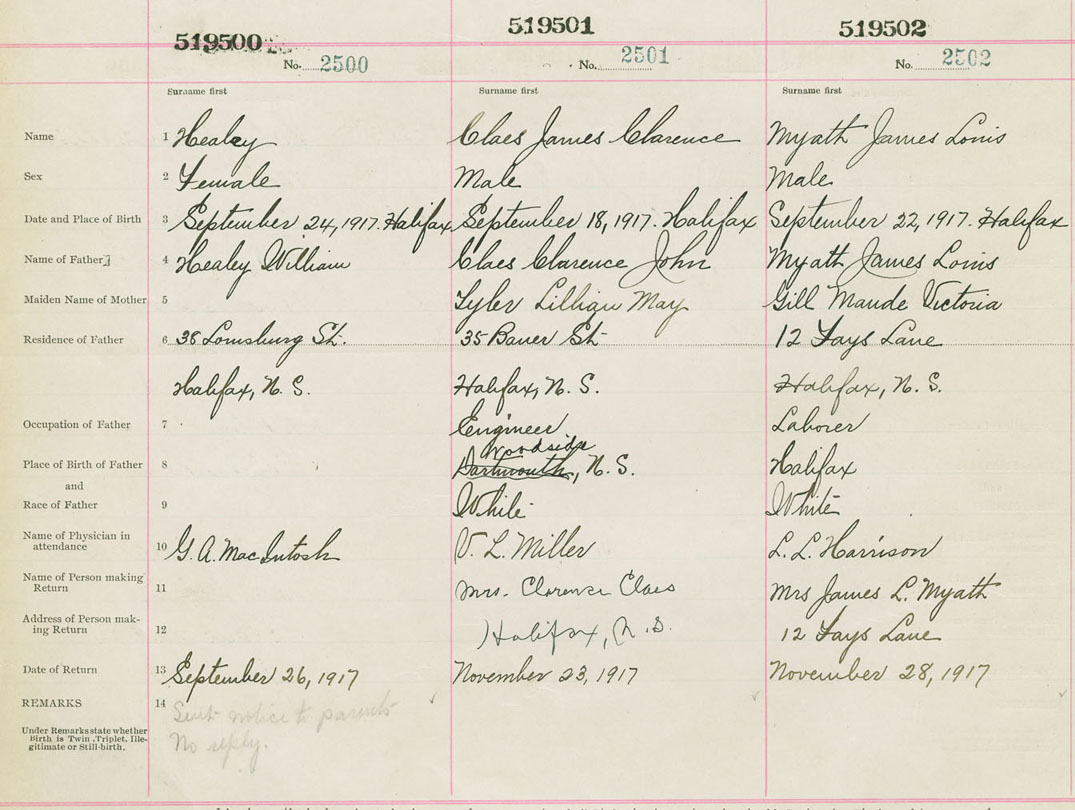 519500 519501 519502
No. 2500 No. 2501 No. 2502
Surname first Surname first Surname first
Name 1 Healey Claes James Clarence Myath James Louis
Sex 2 Female Male Male
Date and Place of Birth 3 September 24, 1917. Halifax September 18, 1917. Halifax September 22, 1917. Halifax
Name of Father 4 Healey William Claes Clarence John Myath James Louis
Maiden Name of Mother 5 Tyler Lillian May Gill Maude Victoria
Residence of Father 6 38 Louisburg St. 35 Bauer St. 12 Fays Lane
Halifax, N. S. Halifax, N. S. Halifax, N. S.
Occupation of Father 7 Engineer Laborer
Woodside
Place of Birth of Father 8 Dartmouth, N. S. Halifax
and
Race of Father 9 White White
Name of Physician in
attendance 10 G. A. MacIntosh V. L. Miller L. L. Harrison
Name of Person making
Return 11 Mrs. Clarence Claes Mrs James L. Myath
Address of Person mak-
ing Return 12 Halifax, N. S. 12 Fays Lane
Date of Return 13 September 26, 1917 November 23, 1917 November 28, 1917
REMARKS 14 Sent notice to parents
Under Remarks state whether
Birth is Twin, Triplet, Ille-
gitimate or Still-birth.
No reply.